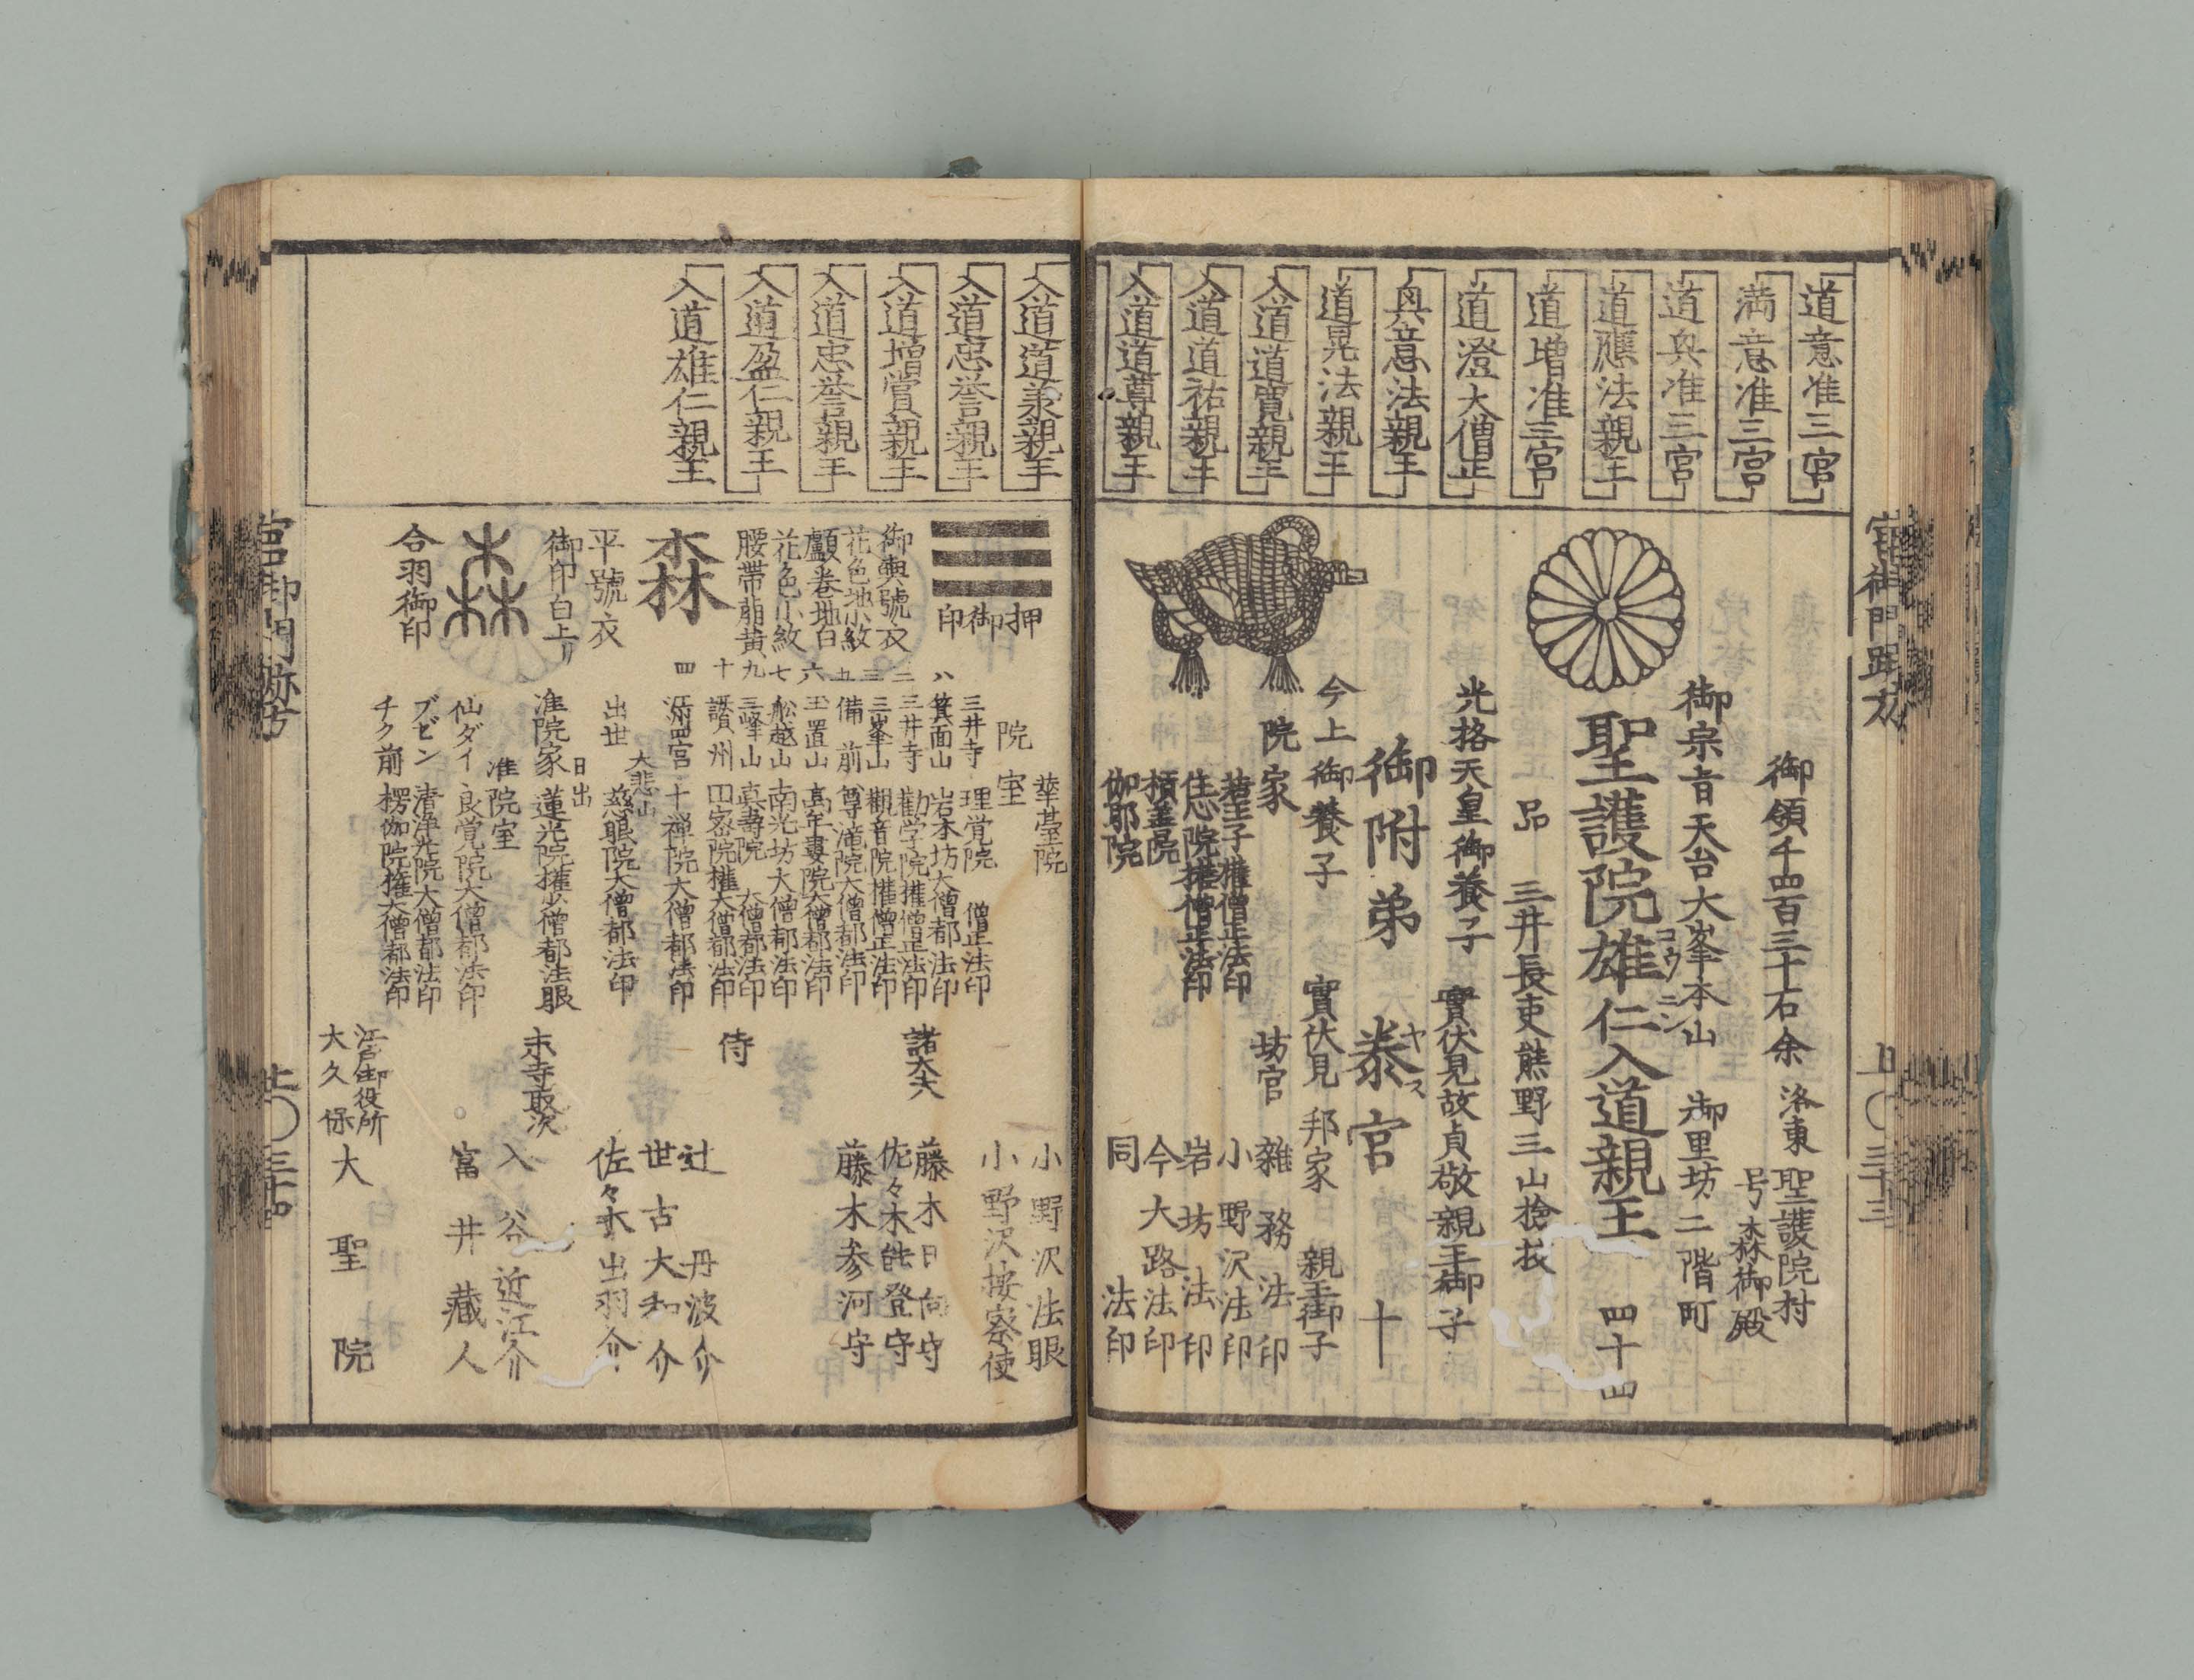 道意准三宮
満意准三宮
道興准三宮
道應法親王
道増准三宮
道澄大僧正
興意法親王
道晃法親王
入道道寛親王
入道道祐親王
入道道尊親王
御領千四百三十石余
洛東
聖護院村
号森御殿
御宗旨天台大峯本山
御里坊二階町
聖護院雄仁入道親王
コウニン
四十四
三井長吏熊野三山検挍
光格天皇御養子
實伏見故貞敬親王御子
御附弟
泰宮
ヤス
十
今上御養子
實伏見邦家親王御子
院家
若王子權僧正法印
住心院權僧正法印
積善院
伽耶院
坊官
雜務法印
小野沢法印
岩坊法印
今大路法印
同法印
入道道承親王
入道忠誉親王
入道増賞親王
入道忠誉親王
入道盈仁親王
入道雄仁親王
押御印
御輿號衣
花色地小紋
顱巻地白
花色小紋
腰帯萠黄
森
平號衣
御印白上リ
森
合羽御印
院室
華臺院
三井寺
理覚院
僧正法印
箕面山
岩本坊大僧都法印
三井寺
勧学院權僧正法印
三峯山
觀音院權僧正法印
備前
尊滝院大僧都法印
玉置山
高牟婁院大僧都法印
舩越山
南光坊大僧都法印
三峰山
真壽院
大僧都法印
讃州
四宮
十禅院大僧都法印
出世
大悲山
慈眼院大僧都法印
日出
准院家
蓮光院權少僧都法眼
准院室
仙ダイ
良覚院大僧都法印
ブゼン
清浄光院大僧都法印
チク前
楞伽院權大僧都法印
小野沢法眼
小野沢按察使
諸大夫
藤木日向守
佐々木能登守
藤木参河守
侍
辻丹波介
世古大和介
佐々木出羽介
末寺取次
入谷近江介
富井藏人
江戸御役所
大久保
大聖院